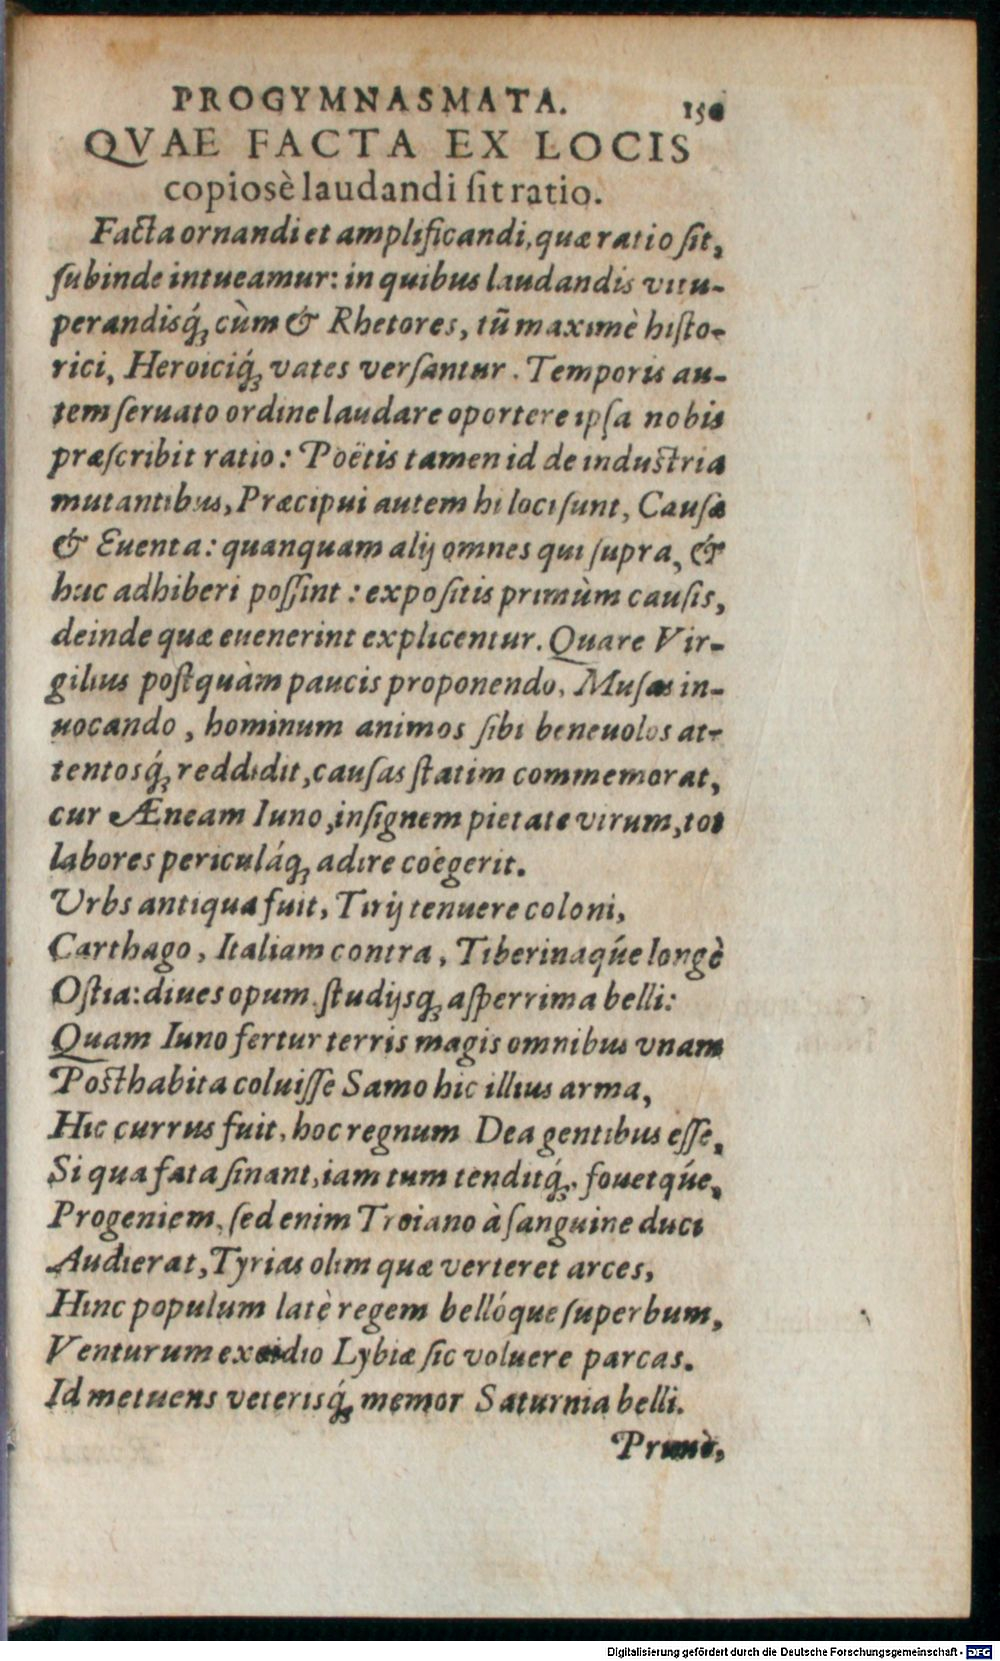 PROGYMNASMATA. 150
QVAE FACTA EX LOCIS
copiosè laudandi sit ratio.
Facta ornandi et amplificandi, quæ ratio sit,
subinde intueamur: in quibus laudandis vitu-
perandisq́ꝫ cùm & Rhetores, tũ maximè histo-
rici, Heroiciq́ꝫ vates versantur. Temporis au-
tem seruato ordine laudare oportere ipsa nobis
præscribit ratio: Poëtis tamen id de industria
mutantibus, Præcipui autem hi loci sunt, Causæ
& Euenta: quanquam alij omnes qui supra, &
huc adhiberi possint: expositis primùm causis,
deinde quæ euenerint explicentur. Quare Vir-
gilius postquàm paucis proponendo, Musas in-
uocando, hominum animos sibi beneuolos at-
tentosq́ꝫ reddidit, causas statim commemorat,
cur Æneam Iuno, insignem pietate virum, tot
labores periculáqꝫ adire coëgerit.
Vrbs antiqua fuit, Tirij tenuere coloni,
Carthago, Italiam contra, Tiberinaq́ue longè
Ostia: diues opum studijsqꝫ asperrima belli:
Quam Iuno fertur terris magis omnibus vnam
Posthabita coluisse Samo hic illius arma,
Hic currus fuit, hoc regnum Dea gentibus esse,
Si qua fata sinant, iam tum tenditq́ꝫ. fouetq́ue,
Progeniem, sed enim Troiano à sanguine duci
Audierat, Tyrias olim quæ verteret arces,
Hinc populum latè regem bellóque superbum,
Venturum excidio Lybiæ sic voluere parcas.
Id metuens veterisq́ꝫ memor Saturnia belli.
Digitalisierung gefördert durch die Deutsche Forschungsgemeinschaft - DFG